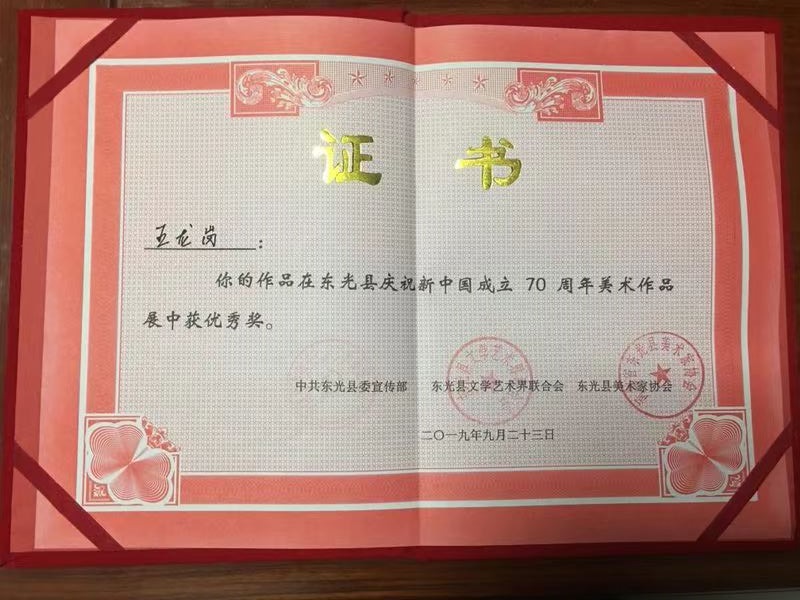 证书
王龙岗：
你的作品在东光县庆祝新中国成立 70 周年美术作品
展中获优秀奖。
中共东光县委宣传部 东光县文学艺术界联合会 东光县美术家协会
二〇一九年九月二十三日